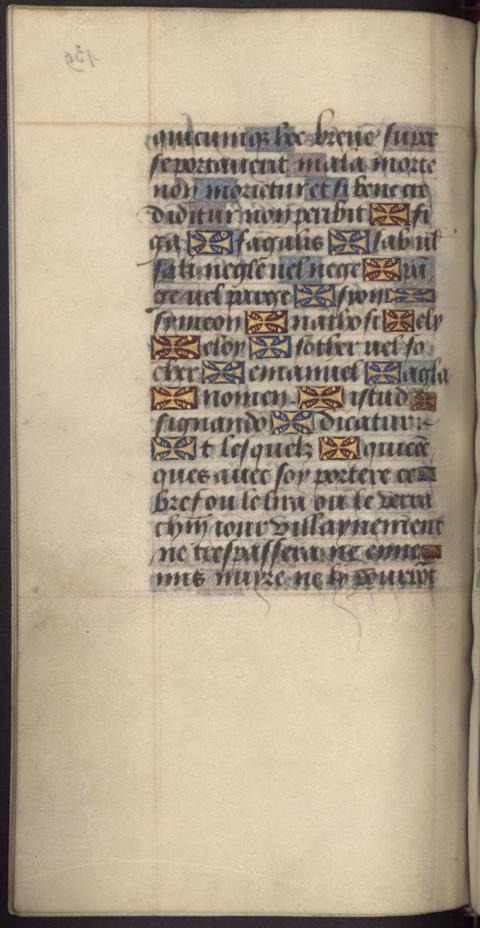 139
quicumqꝫ hoc breue super
se portauerit mala morte
non morietur et si bene cre
diditur non peribit ✠ si
ga ✠ sagalis ✠ sab ul
sali negle uel nege ✠
ge uel parge ✠ syon
symeon ✠ nathost ✠ ely
✠ eloy ✠ sother uel so
cher ✠ emanuel ✠ agla
✠ nomen ✠ istud
signando ✠ dicatur:
✠ t lesquelz ✠ quicõ
ques auec soy portera ce
bref ou le lira ou le verra
chm̃ iour villaynement
ne trespassera ne enne
mis nuyre ne ly pourrõt